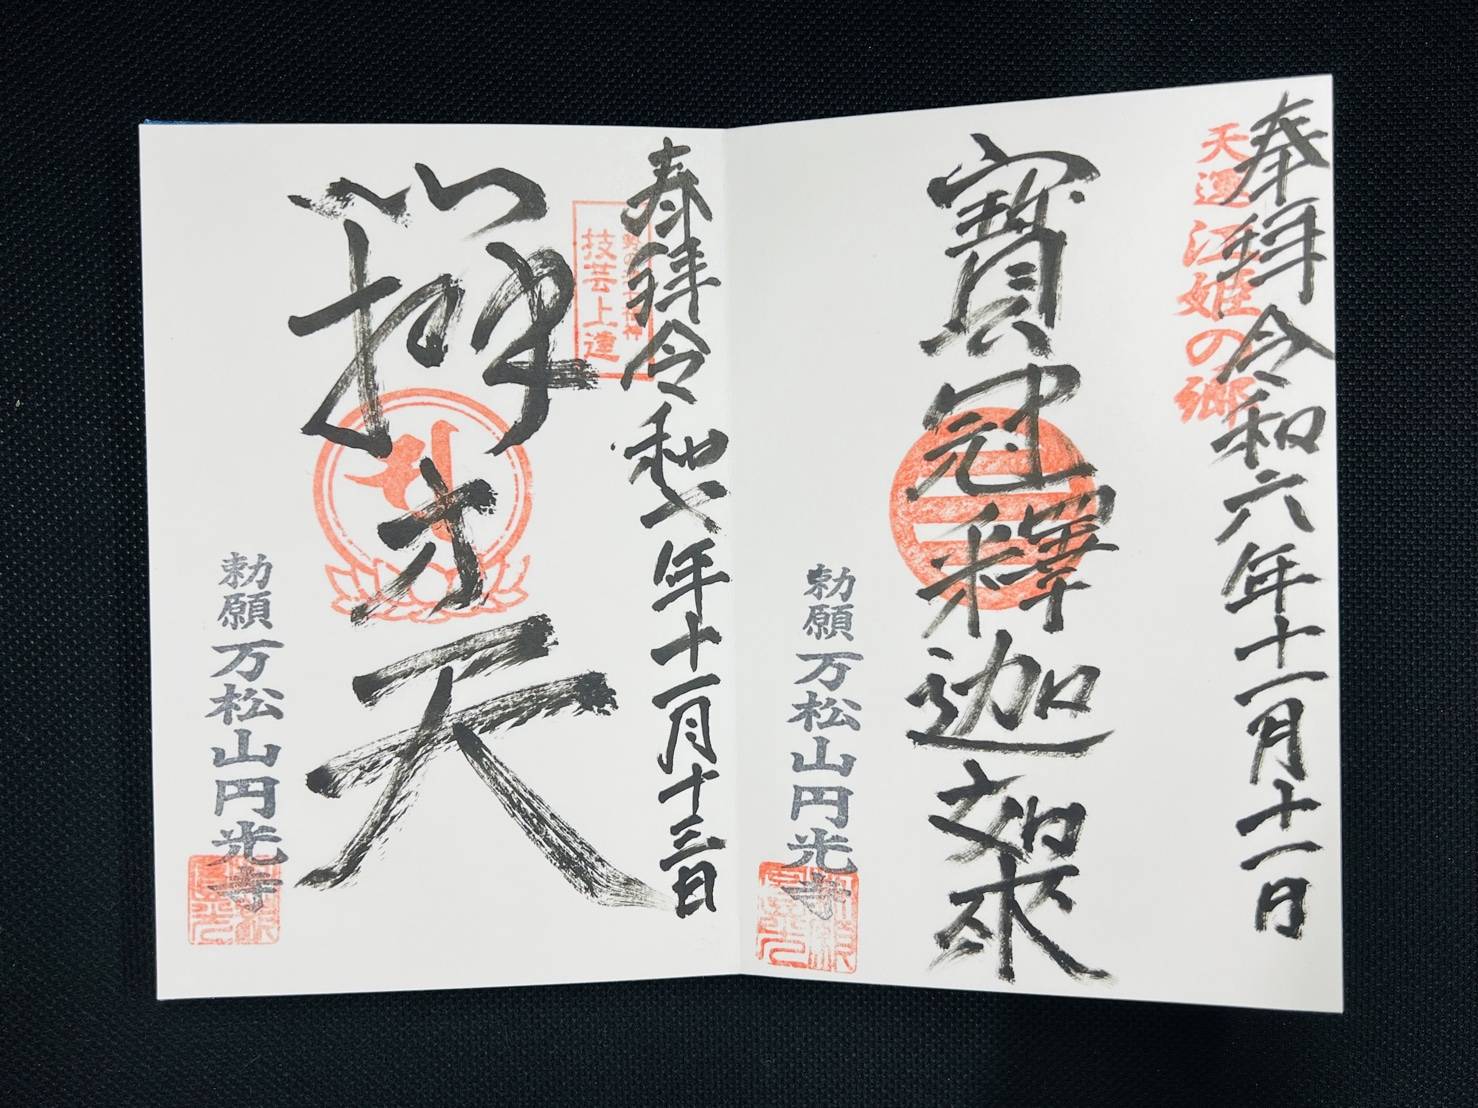 奉拝 令和六年十一月十一日
天遇 江姫の郷
寶冠釋迦如来
勅願 万松山円光寺
奉拝 令和七年十一月十三日
技芸上達
辨才天
勅願 万松山円光寺